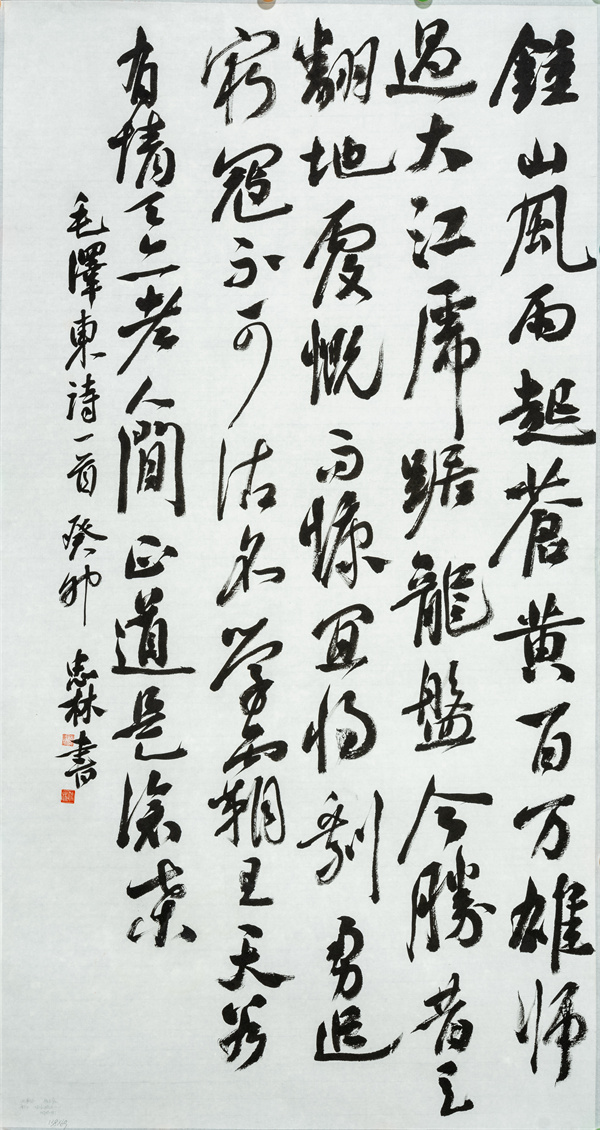 鍾山風雨起蒼黄百万雄师
過大江虎踞龍盤今勝昔天
翻地覆慨而慷宜将剩勇追
窮寇不可沽名学霸王天若
有情天亦老人間正道是滄桑
毛澤東詩一首 癸卯 忠林書